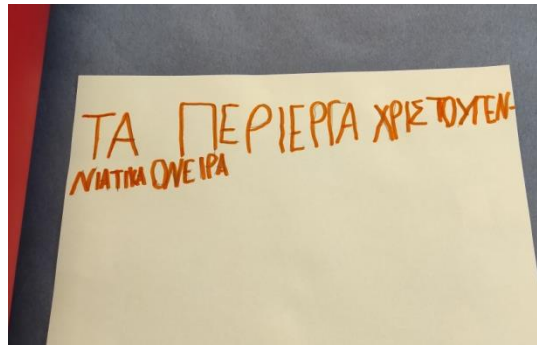 ΤΑ ΠΕΡΙΕΡΓΑ ΧΡΙΣΤΟΥΓΕΝ-
ΝΙΑΤΙΚΑ ΟΝΕΙΡΑ